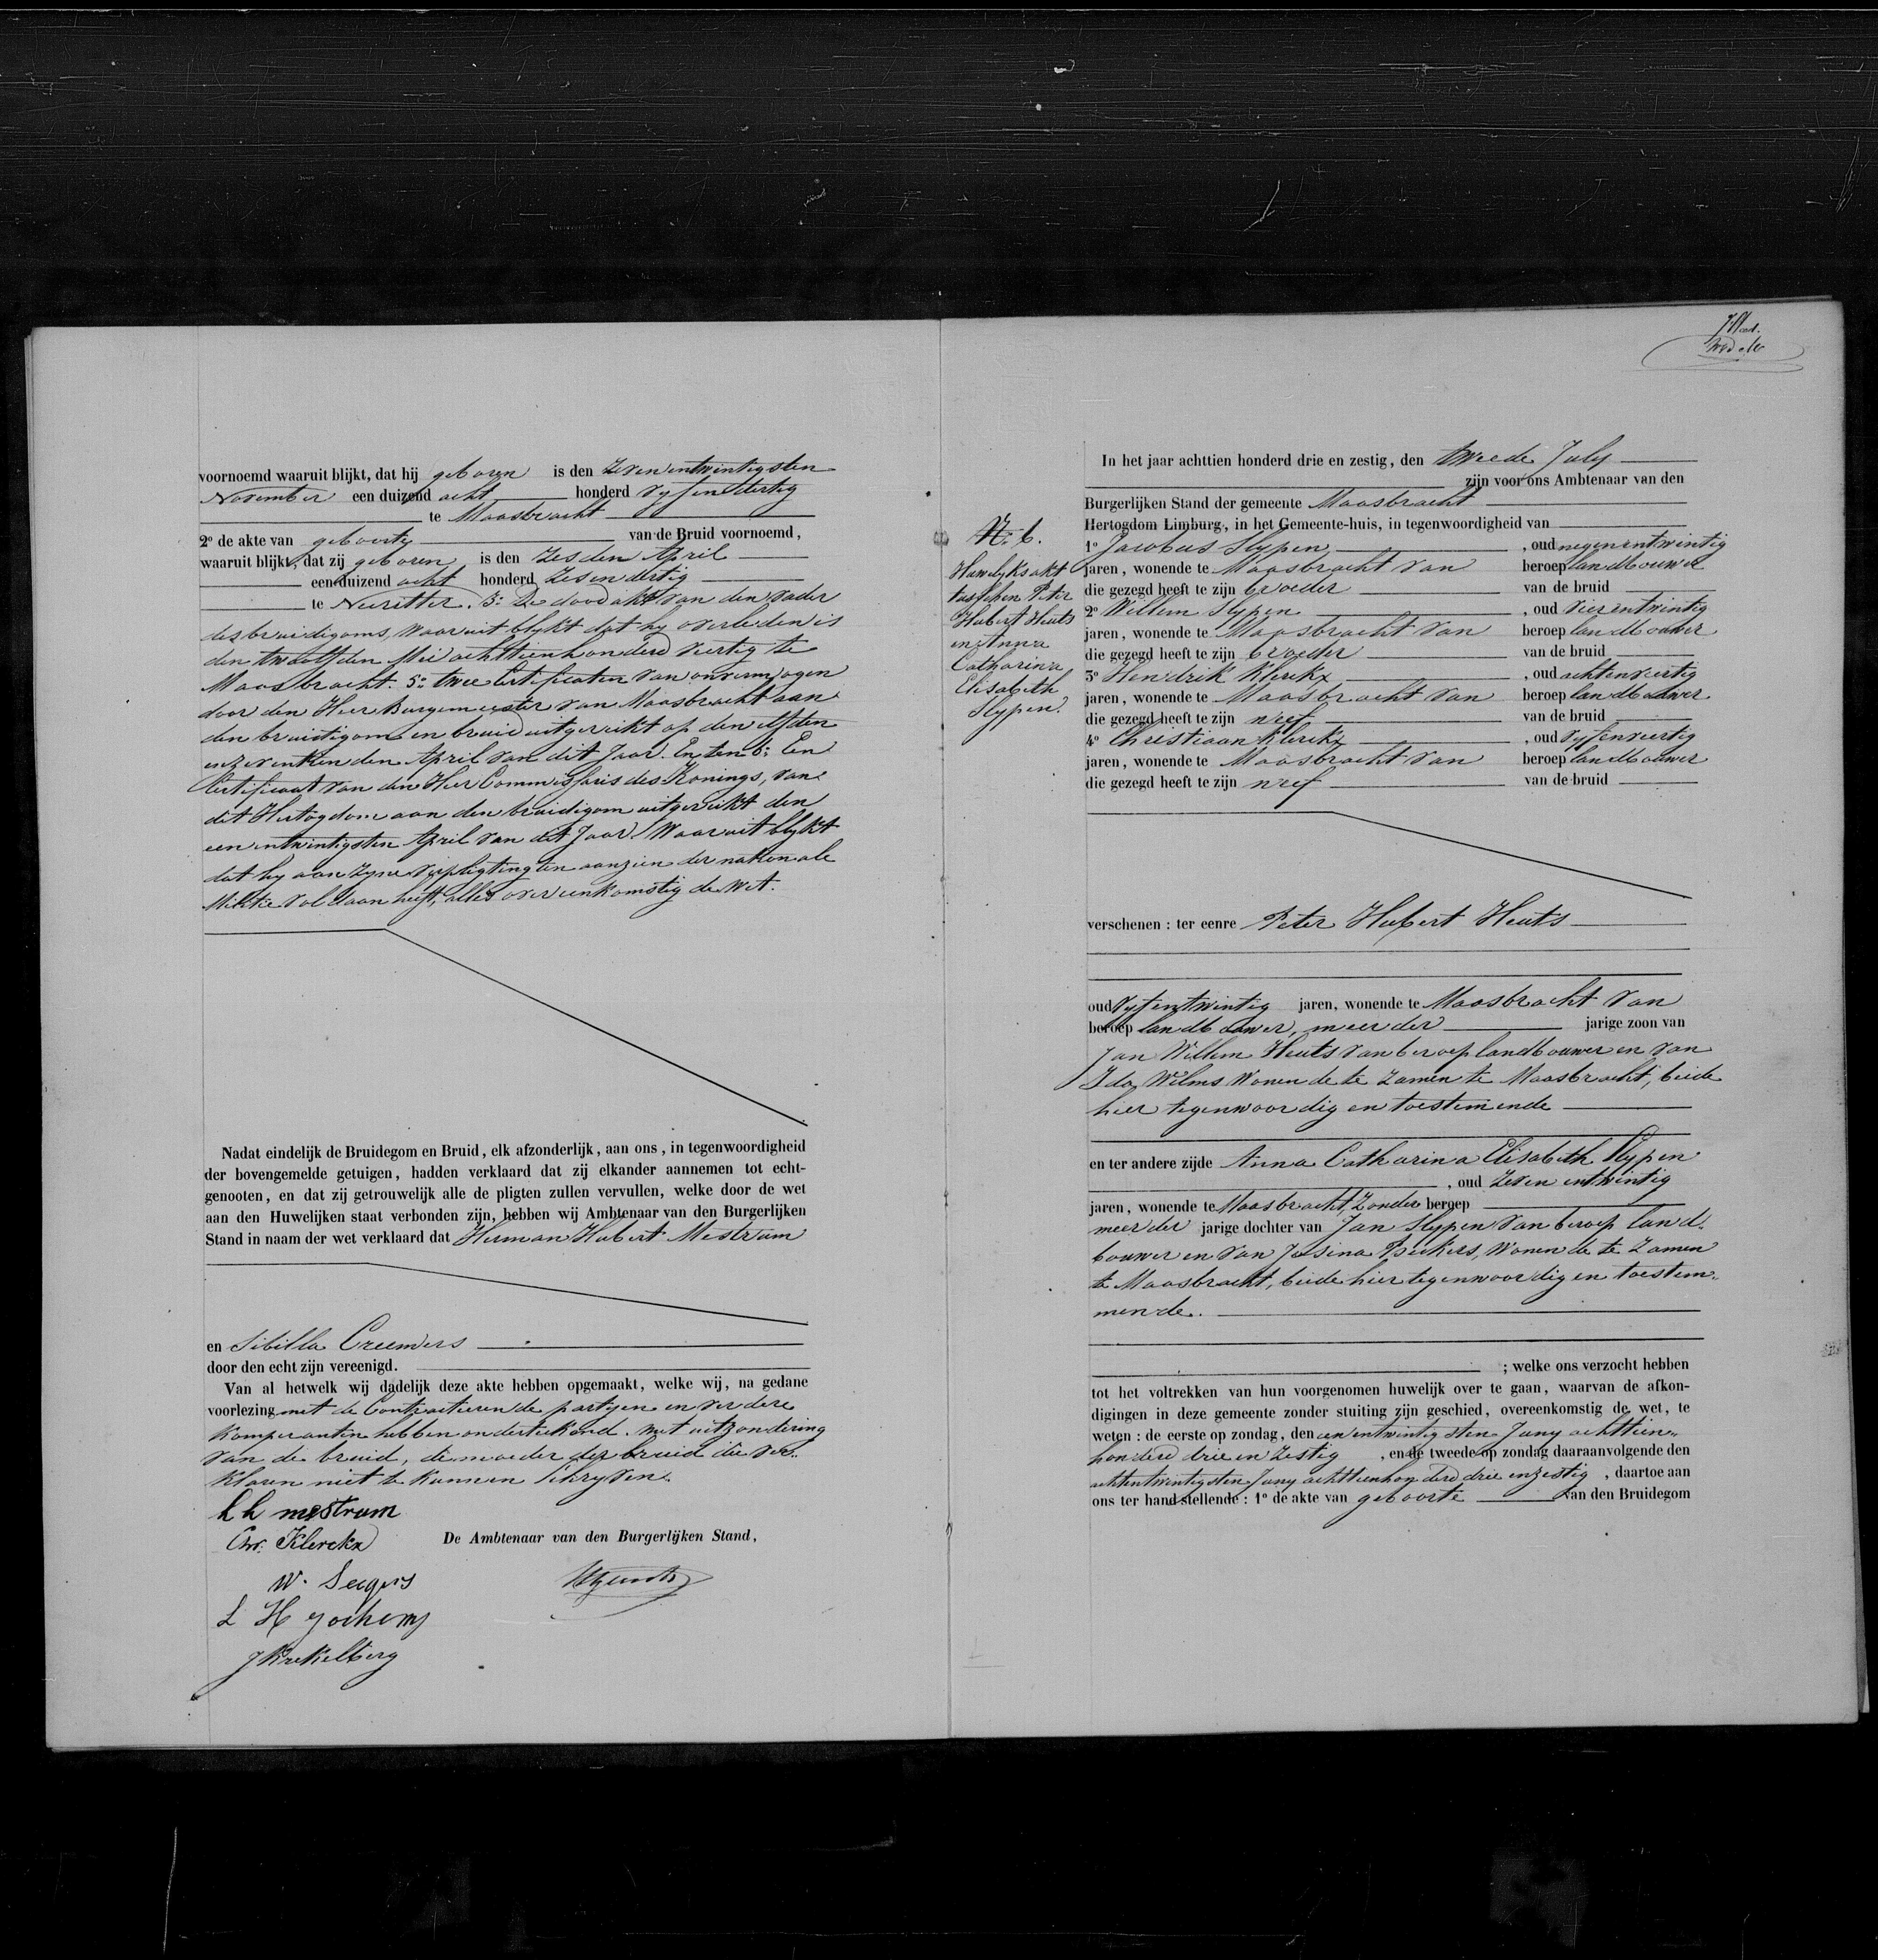 voornoemd waaruit blijkt, dat hij geboren is den Zevenentwintigsten
November een duizend acht honderd vyfendertig
te Maasbracht
2° de akte van geboorte van de Bruid voornoemd,
waaruit blijkt, dat zij geboren is den Zesden April
een duizend acht honderd Zesendertig
te Neeritter. 3: De doodakt van den vader
des bruidigoms, waaruit blykt dat hy overleden is
den twaalfden Mei achttienhonderd veertig te
Maasbracht. 5: twee Certificaten van onvermogen
door den Heer Burgemeester van Maasbracht aan
den bruidigom en bruid uitgereikt op den elfden
en zeventienden April van dit Jaar. En ten 6: Een
Certificaat van den Heer Commissaris des Konings, van
dit Hertogdom aan den bruidigom uitgereikt den
eenentwintigsten April van dit Jaar. Waaruit blykt
dat hy aan zyne verpligting ten aanzien der nationale
Militie voldaan heeft, alles overeenkomstig de wet.
Nadat eindelijk de Bruidegom en Bruid, elk afzonderlijk, aan ons, in tegenwoordigheid
der bovengemelde getuigen, hadden verklaard dat zij elkander aannemen tot echt-
genooten, en dat zij getrouwelijk alle de pligten zullen vervullen, welke door de wet
aan den Huwelijken staat verbonden zijn, hebben wij Ambtenaar van den Burgerlijken
Stand in naam der wet verklaard dat Herman Hubert Mestrum
en Sibilla Creemers
door den echt zijn vereenigd.
Van al hetwelk wij dadelijk deze akte hebben opgemaakt, welke wij, na gedane
voorlezing met de Contracteerende partyen en verdere
Komparanten hebben onderteekend. met uitzondering
van de bruid, de moeder der bruid die ver-
klaren niet te kunnen Schryven.
h h mestrum
Chr. Klerckx
De Ambtenaar van den Burgerlijken Stand,
W. Seegers
L H Jochems
J Krekelberg
In het jaar achttien honderd drie en zestig, den tweede July
zijn voor ons Ambtenaar van den
Burgerlijken Stand der gemeente Maasbracht
Hertogdom Limburg, in het Gemeente-huis, in tegenwoordigheid van
N. 6.
Huwelyks akt
tusschen Peter
Hubert Heuts
en Anna
Catharina
Elisabeth
Slypen.
1° Jacobus Slypen, oud negenentwintig
jaren, wonende te Maasbracht van beroep landbouwer
die gezegd heeft te zijn broeder van de bruid
2° Willem Slypen, oud vierentwintig
jaren, wonende te Maasbracht van beroep landbouwer
die gezegd heeft te zijn broeder van de bruid
3° Hendrik Klerckx, oud achtenveertig
jaren, wonende te Maasbracht van beroep landbouwer
die gezegd heeft te zijn neef van de bruid
4° Christiaan Klerckx, oud vyfenveertig
jaren, wonende te Maasbracht van beroep landbouwer
die gezegd heeft te zijn neef van de bruid
verschenen : ter eenre Peter Hubert Heuts
oud vyfentwintig jaren, wonende te Maasbracht van
beroep landbouwer, meerder jarige zoon van
Jan Willem Heuts van beroep landbouwer en van
Ida Wilms wonende te zamen te Maasbracht, beide
hier tegenwoordig en toestemende
en ter andere zijde Anna Catharina Elisabeth Slypen
, oud Zevenentwintig
jaren, wonende te Maasbracht, Zonder beroep
meerder jarige dochter van Jan Slypen van beroep land-
bouwer en van Josina Peekers, wonende te zamen
te Maasbracht, beide hier tegenwoordig en toestem-
mende.
; welke ons verzocht hebben
tot het voltrekken van hun voorgenomen huwelijk over te gaan, waarvan de afkon-
digingen in deze gemeente zonder stuiting zijn geschied, overeenkomstig de wet, te
weten : de eerste op zondag, den eenentwintigsten Juny achttien-
honderd drie en Zestig, en de tweede op zondag daaraanvolgende den
achtentwintigsten Juny achttienhonderd drie en zestig, daartoe aan
ons ter hand stellende : 1° de akte van geboorte van den Bruidegom